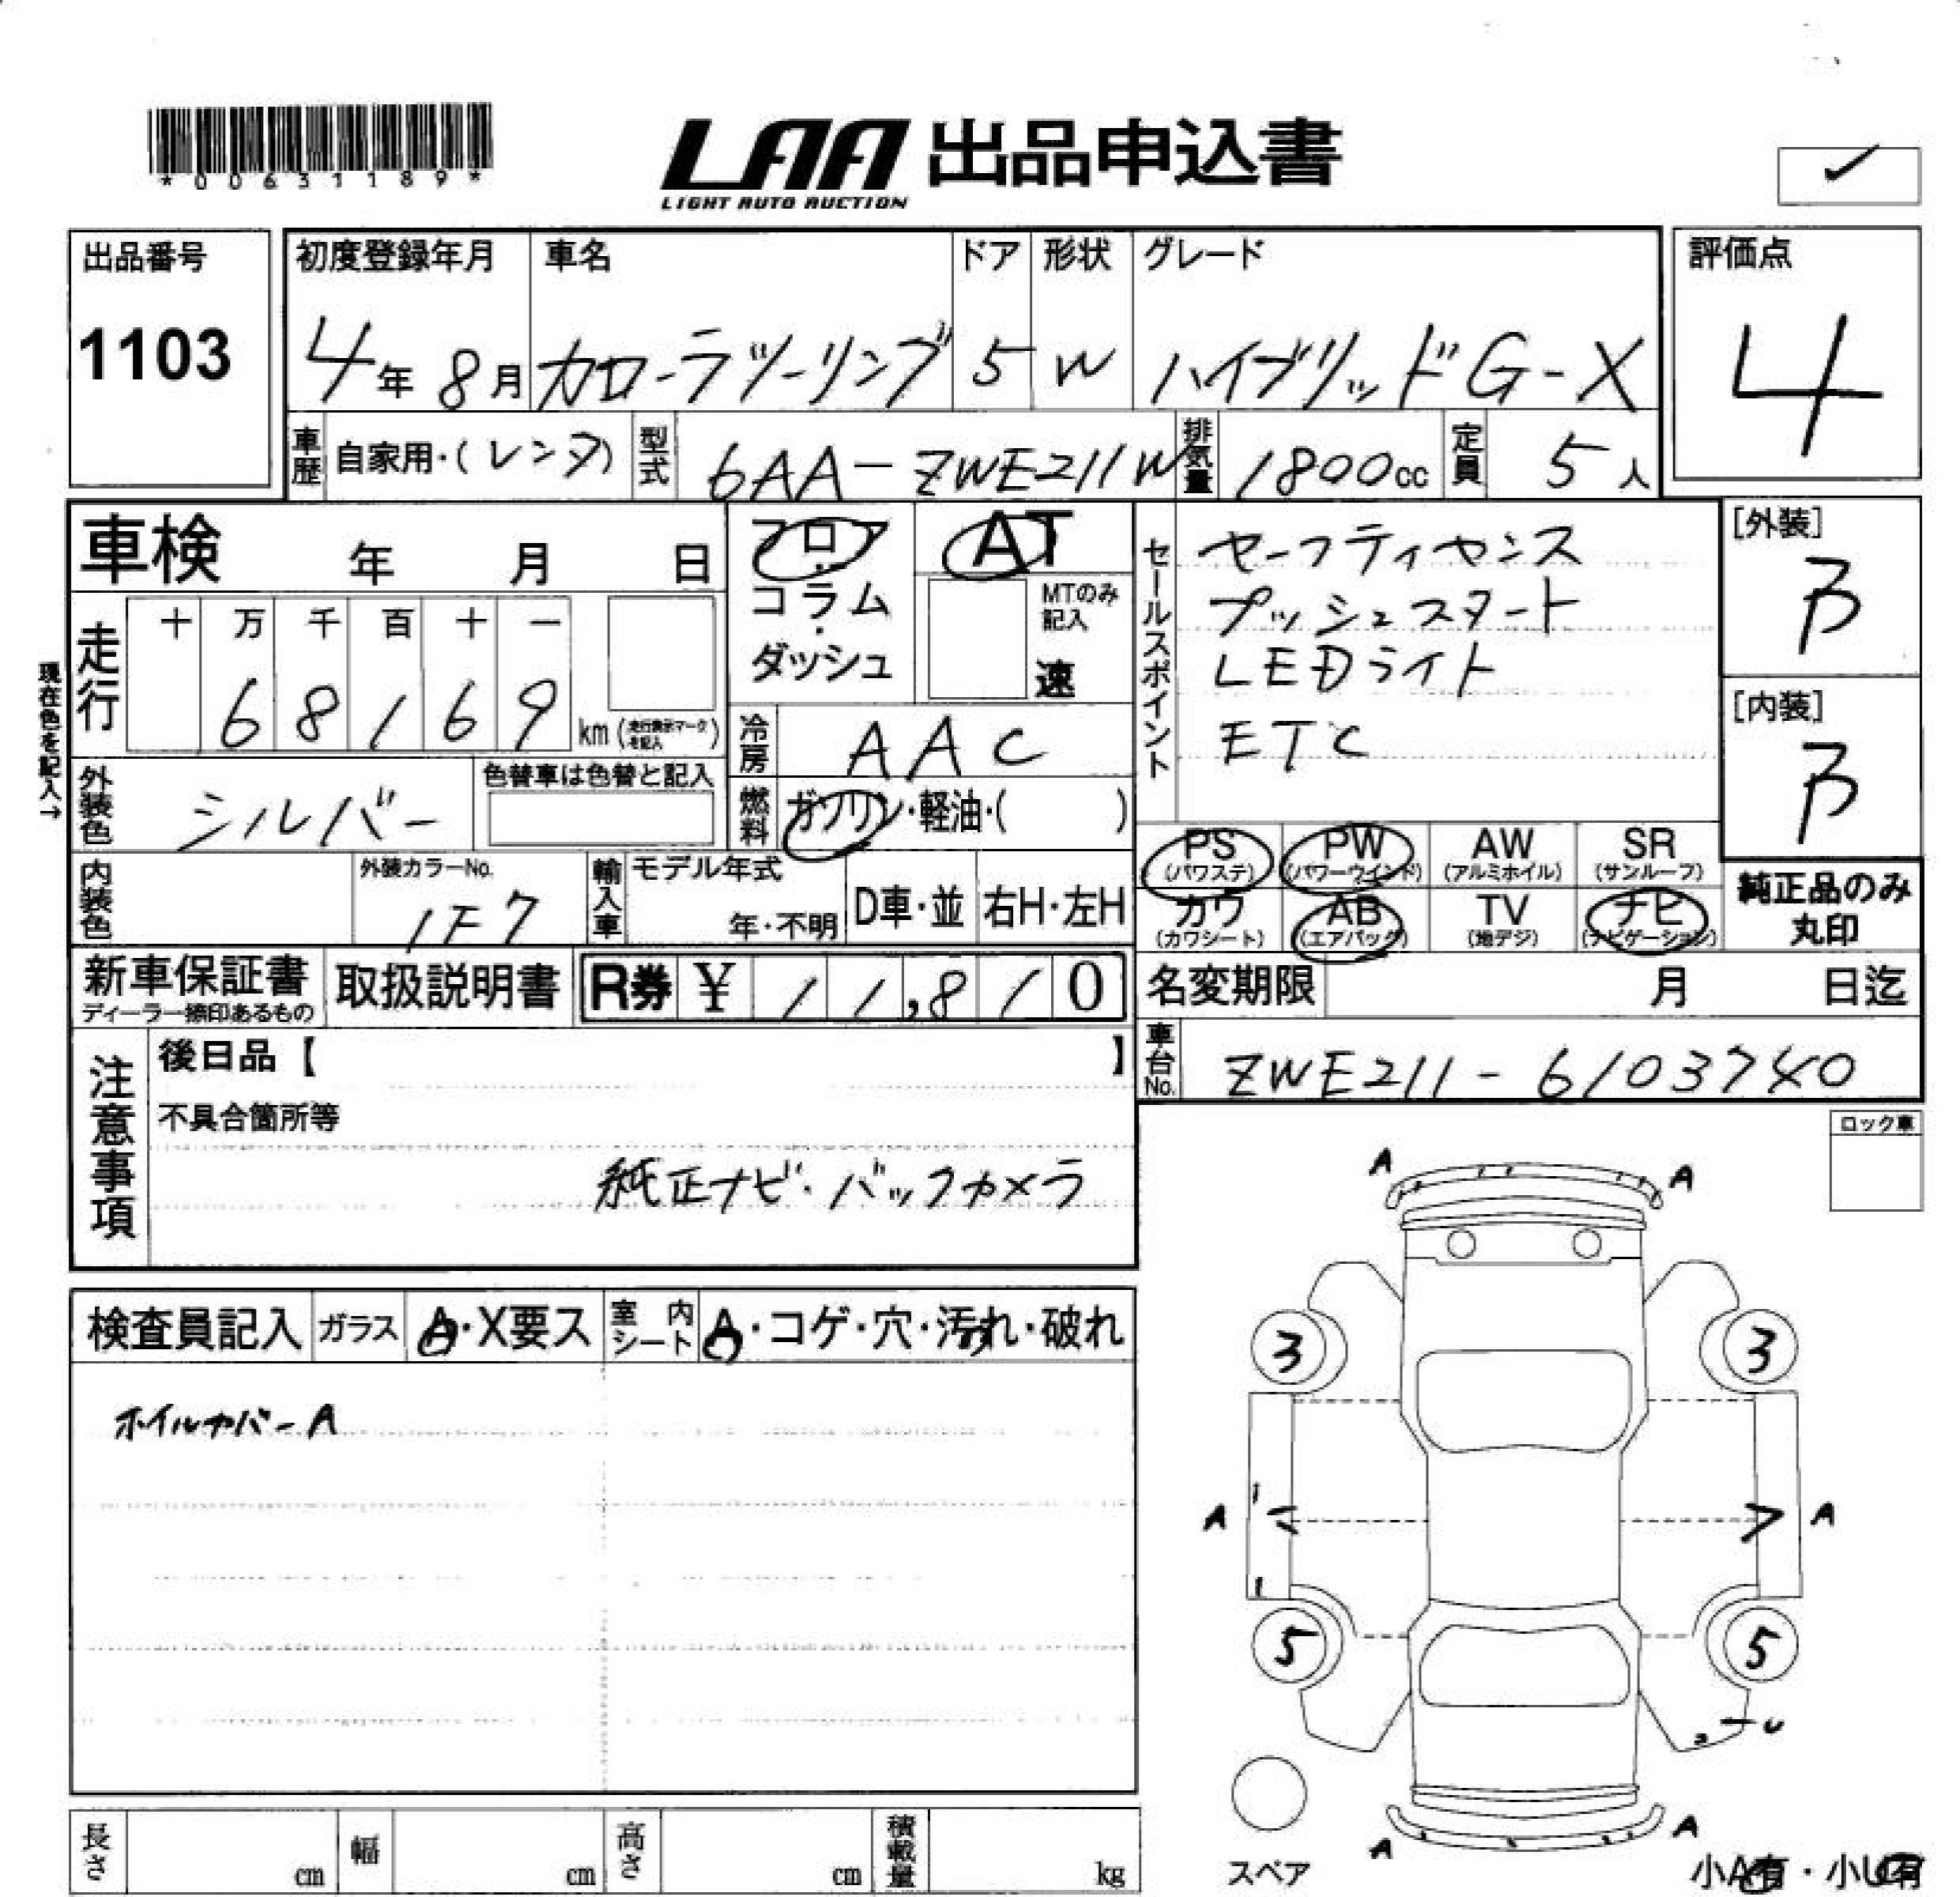 *00631189*
LAA 出品申込書
LIGHT AUTO AUCTION
✓
出品番号
1103
初度登録年月
4年 8月
車名
カローラツーリング
ドア
5
形状
W
グレード
ハイブリッドG-X
評価点
4
車歴 自家用・(レンタ)
型式 6AA-ZWE211W
排気量 1800cc
定員 5人
車検 年 月 日
フロア
コラム
・
ダッシュ
AT
MTのみ記入
速
セールスポイント
セーフティセンス
プッシュスタート
LEDライト
ETC
[外装]
B
[内装]
B
現在色を記入→
走行
十 万 千 百 十 一
6 8 1 6 9 km (走行表示マークを記入)
冷房 AAC
外装色 シルバー
色替車は色替と記入
燃料 ガソリン・軽油・( )
内装色
外装カラーNo.
1F7
輸入車
モデル年式
年・不明
D車・並
右H・左H
PS
(パワステ)
PW
(パワーウインド)
AW
(アルミホイル)
SR
(サンルーフ)
カワ
(カワシート)
AB
(エアバッグ)
TV
(地デジ)
ナビ
(ナビゲーション)
純正品のみ
丸印
新車保証書
ディーラー捺印あるもの
取扱説明書
R券 ¥ 11,810
名変期限 月 日迄
車台No. ZWE211-6103740
注意事項
後日品【 】
不具合箇所等
純正ナビ・バックカメラ
ロック車
検査員記入
ガラス A・X要ス
室内シート A・コゲ・穴・汚れ・破れ
ホイルカバーA
A A
3 3
A A
5 5
U
A A
スペア
小A有・小U有
長さ cm
幅 cm
高さ cm
積載量 kg